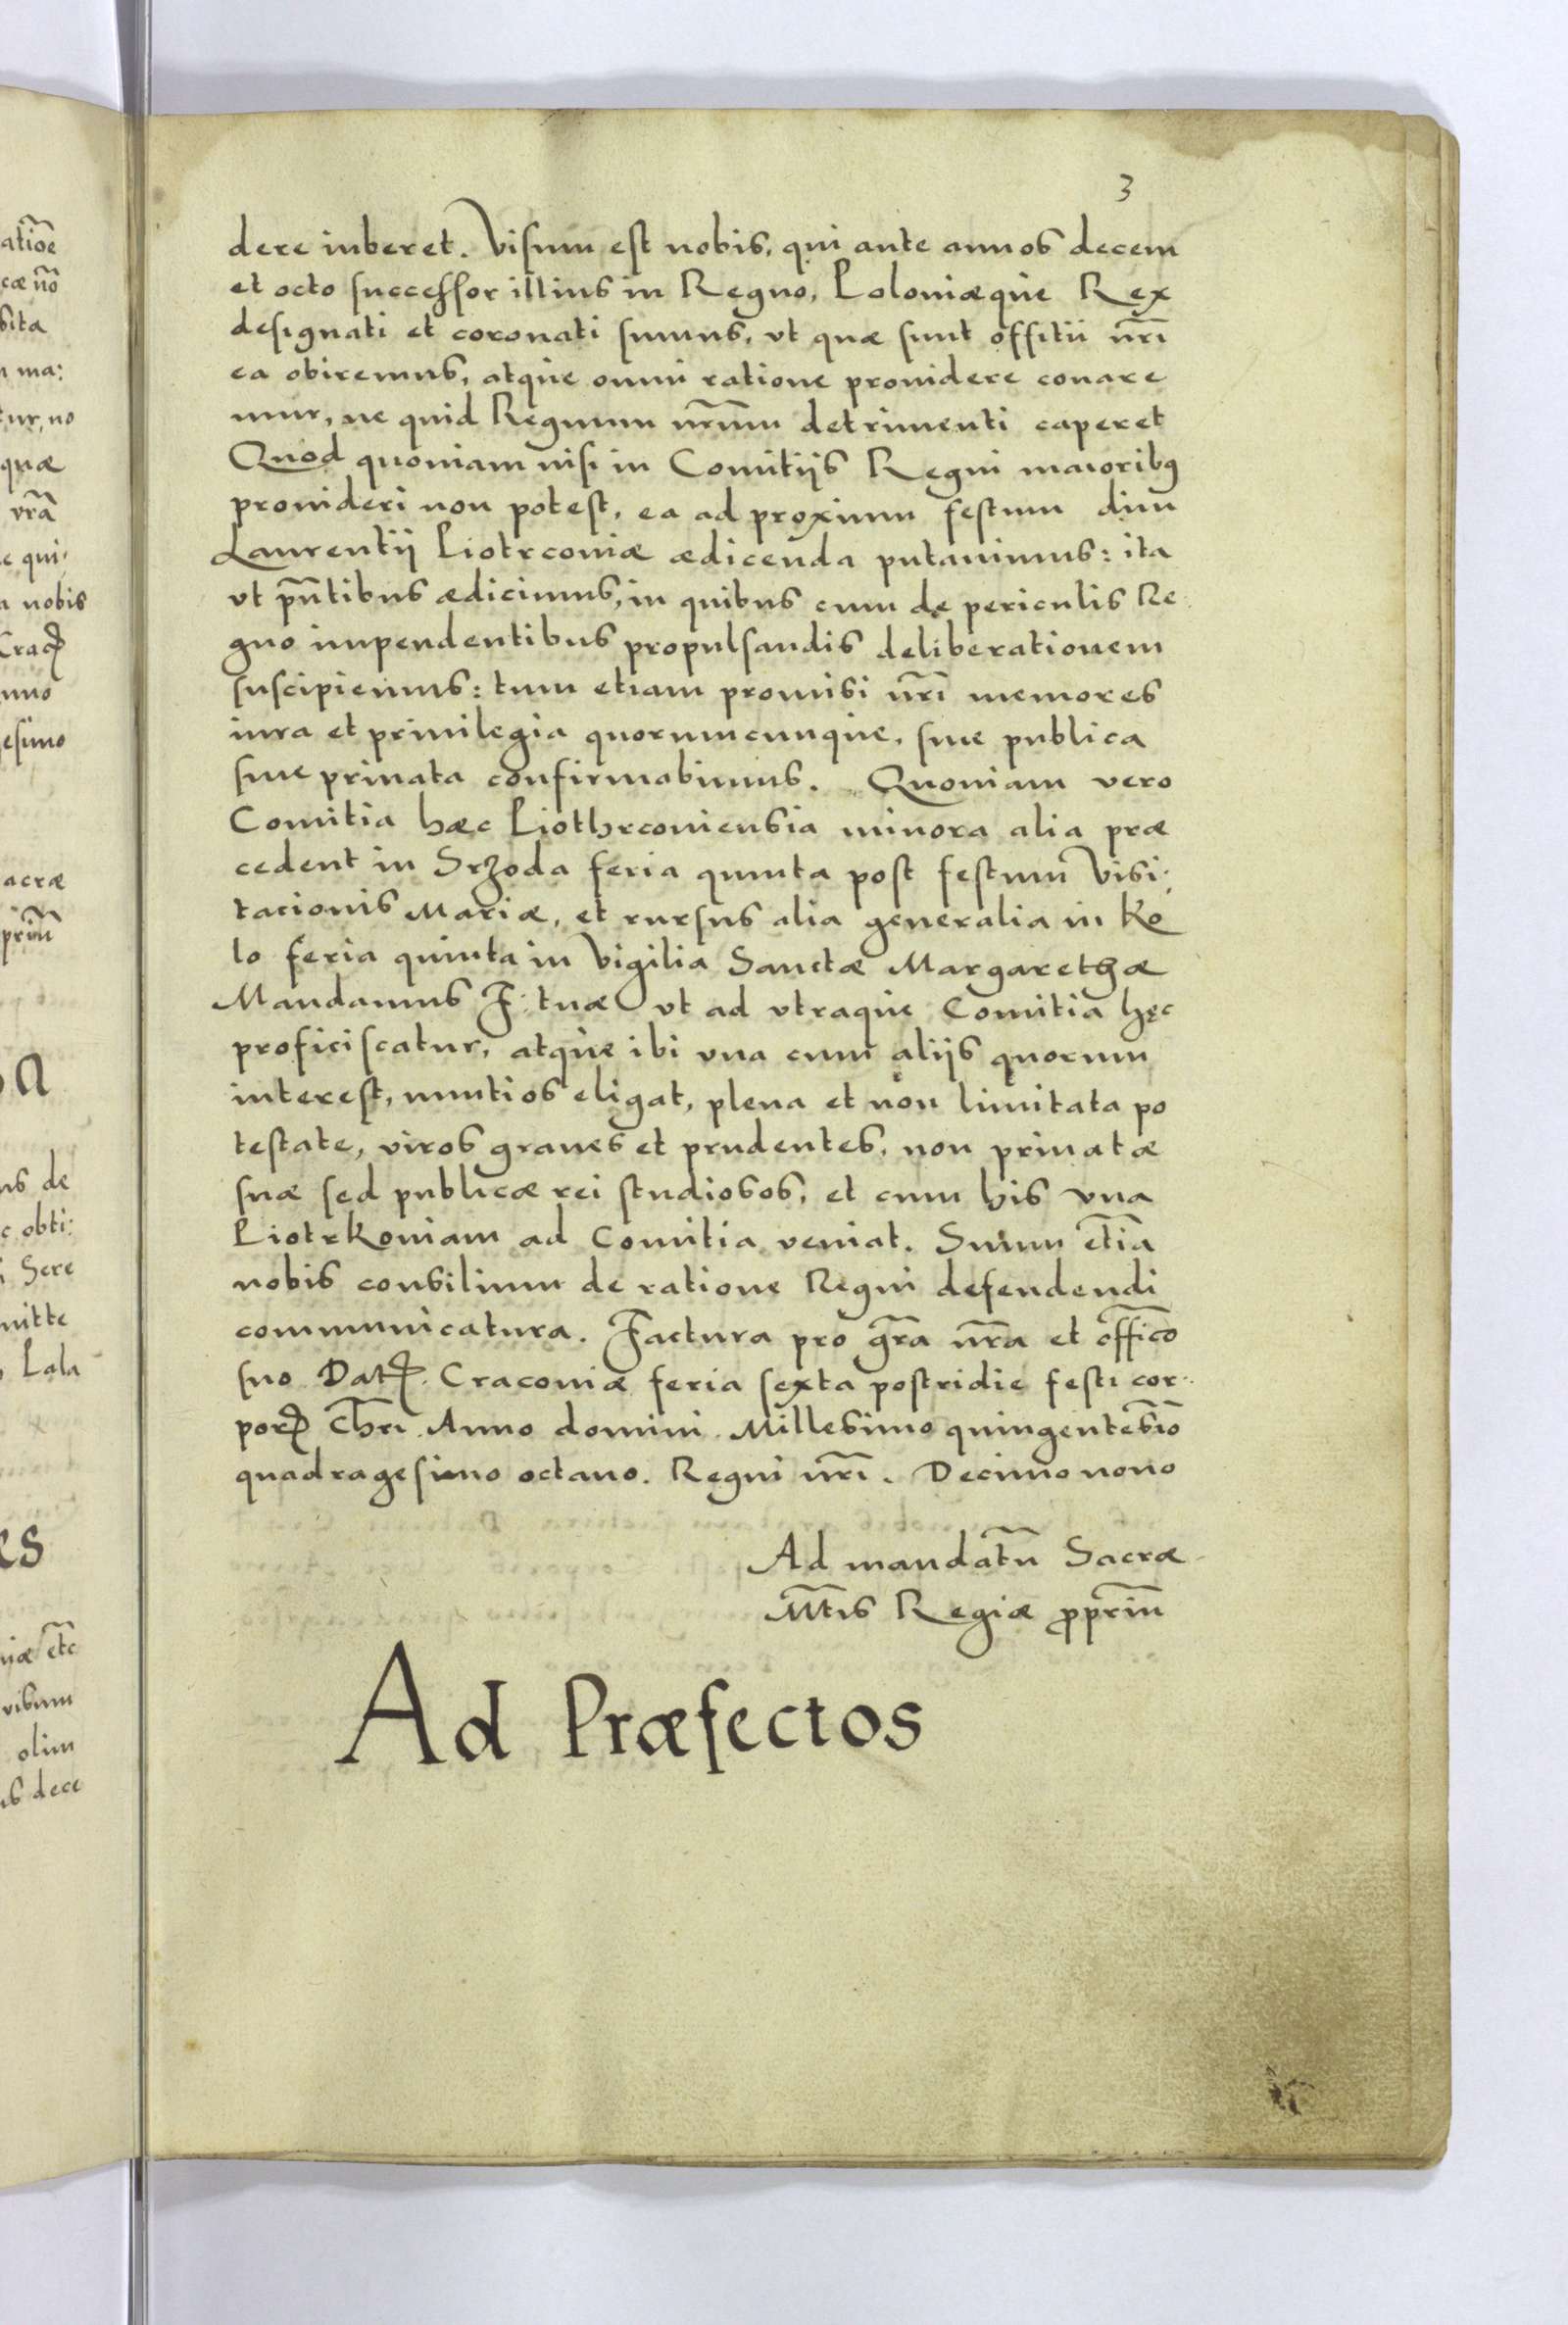 3
dere iuberet. Visum est nobis, qui ante annos decem
et octo successor illius in Regno, Poloniæque Rex
designati et coronati sumus, vt quæ sunt offitii nr̃i
ea obiremus, atque omni ratione prouidere conare
mur, ne quid Regnum nr̃um detrimenti caperet
Quod quoniam nisi in Comitijs Regni maioribꝯ
prouideri non potest, ea ad proximum festum diui
Laurentij Piotrconiæ ædicenda putauimus: ita
vt pñtibus ædicimus, in quibus cum de periculis Re
gno impendentibus propulsandis deliberationem
suscipiemus: tum etiam promisi nr̃i memores
iura et priuilegia quorumcunque, siue publica
siue priuata confirmabimus. Quoniam vero
Comitia hæc Piothrconiensia minora alia præ
cedent in Srzoda feria quinta post festum Visi:
tacionis Mariæ, et rursus alia generalia in Ko
lo feria quinta in Vigilia Sanctæ Margarethæ
Mandamus F: tuæ vt ad vtraque Comitia hęc
proficiscatur, atque ibi vna cum aliis quorum
interest, nuntios eligat, plena et non limitata po
testate, viros graues et prudentes, non priuatæ
suæ sed publicæ rei studiosos, et cum his vna
Piotrkoniam ad Comitia veniat. Suum etiã
nobis consilium de ratione Regni defendendi
communicatura. Factura pro gr̃a nr̃a et offico
suo Datꝭ. Craconiæ feria sexta postridie festi cor:
porꝭ Chr̃i Anno domini Millesimo quingentesĩo
quadragesimo octauo. Regni nr̃i. Decimo nono
Ad mandatũ Sacræ
Mt̃is Regiæ ꝓpriũ
Ad Præfectos